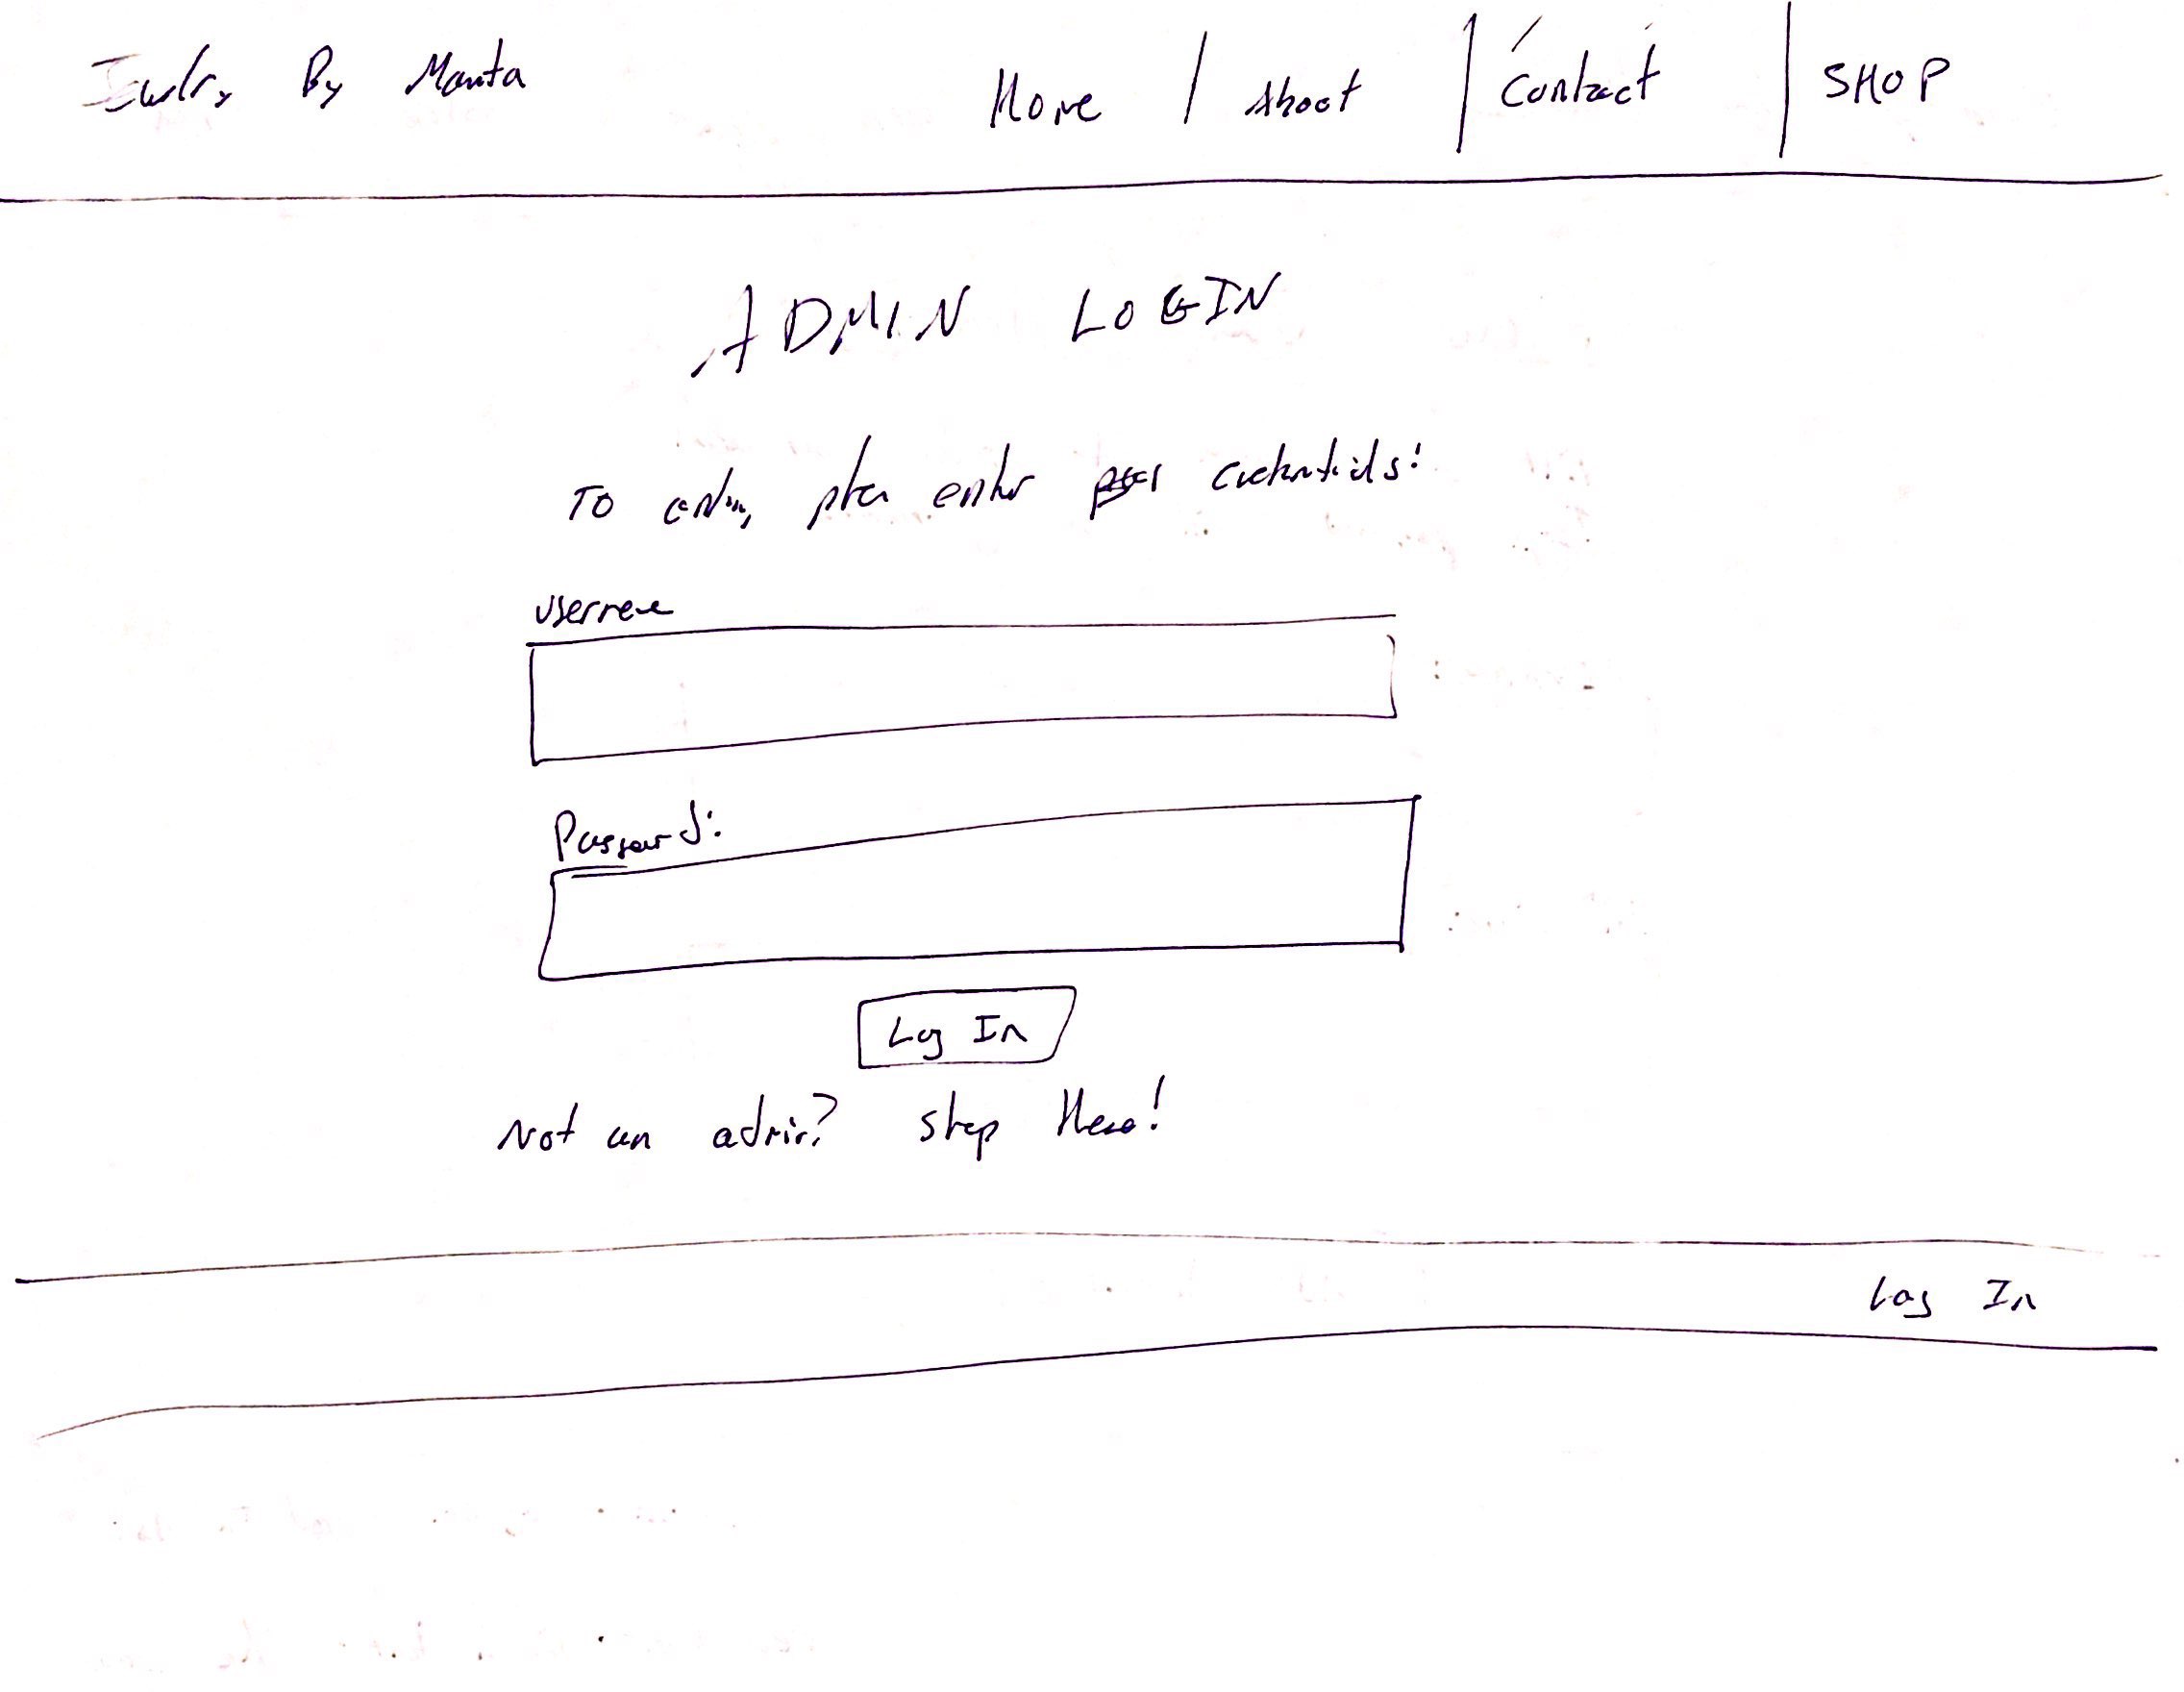 Jewlry By Manta
Home | About | Contact | SHOP
ADMIN LOGIN
To enter, please enter your credentials:
username
Password:
Log In
Not an admin? Shop Here!
Log In